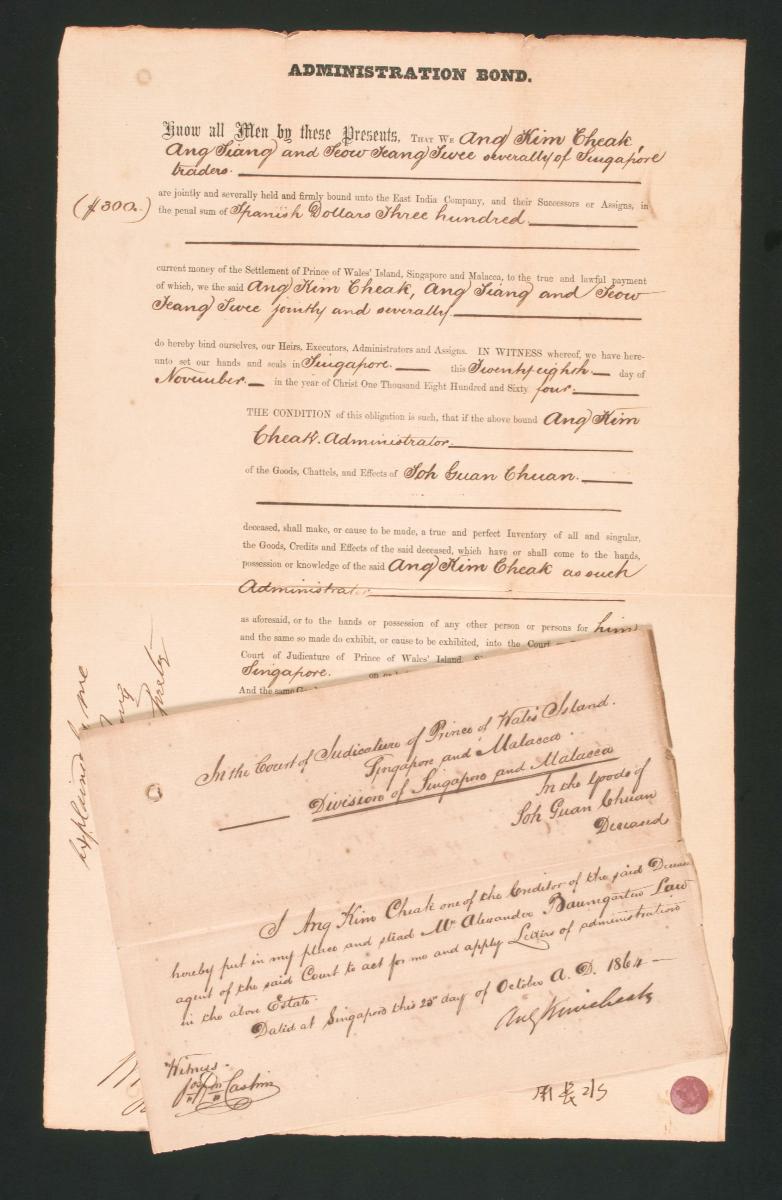 ADMINISTRATION BOND.
Know all Men by these Presents, THAT WE Ang Kim Cheak,
Ang Siang and Seow Seang Swee severally of Singapore
traders.
are jointly and severally held and firmly bound unto the East India Company, and their Successors or Assigns, in
($300.)
the penal sum of Spanish Dollars Three hundred
current money of the Settlement of Prince of Wales' Island, Singapore and Malacca, to the true and lawful payment
of which, we the said Ang Kim Cheak, Ang Siang and Seow
Seang Swee jointly and severally
do hereby bind ourselves, our Heirs, Executors, Administrators and Assigns. IN WITNESS whereof, we have here-
unto set our hands and seals in Singapore. this Twenty eighth day of
November in the year of Christ One Thousand Eight Hundred and Sixty four.
THE CONDITION of this obligation is such, that if the above bound Ang Kim
Cheak. Administrator
of the Goods, Chattels, and Effects of Soh Guan Chuan.
deceased, shall make, or cause to be made, a true and perfect Inventory of all and singular,
the Goods, Credits and Effects of the said deceased, which have or shall come to the hands,
possession or knowledge of the said Ang Kim Cheak as such
Administrator
as aforesaid, or to the hands or possession of any other person or persons for him
and the same so made do exhibit, or cause to be exhibited, into the Court
Court of Judicature of Prince of Wales' Island
Singapore.
And the same
explained by me
In the Court of Judicature of Prince of Wales Island.
Singapore and Malacca.
Division of Singapore and Malacca
In the Goods of
Soh Guan Chuan
Deceased
I Ang Kim Cheak one of the Creditor of the said
hereby put in my place and stead Mr Alexander Baumgarten Law
agent of the said Court to act for me and apply Letters of administration
in the above Estate.
Dated at Singapore this 25 day of October A. D. 1864
Ang Kimcheak
Witness